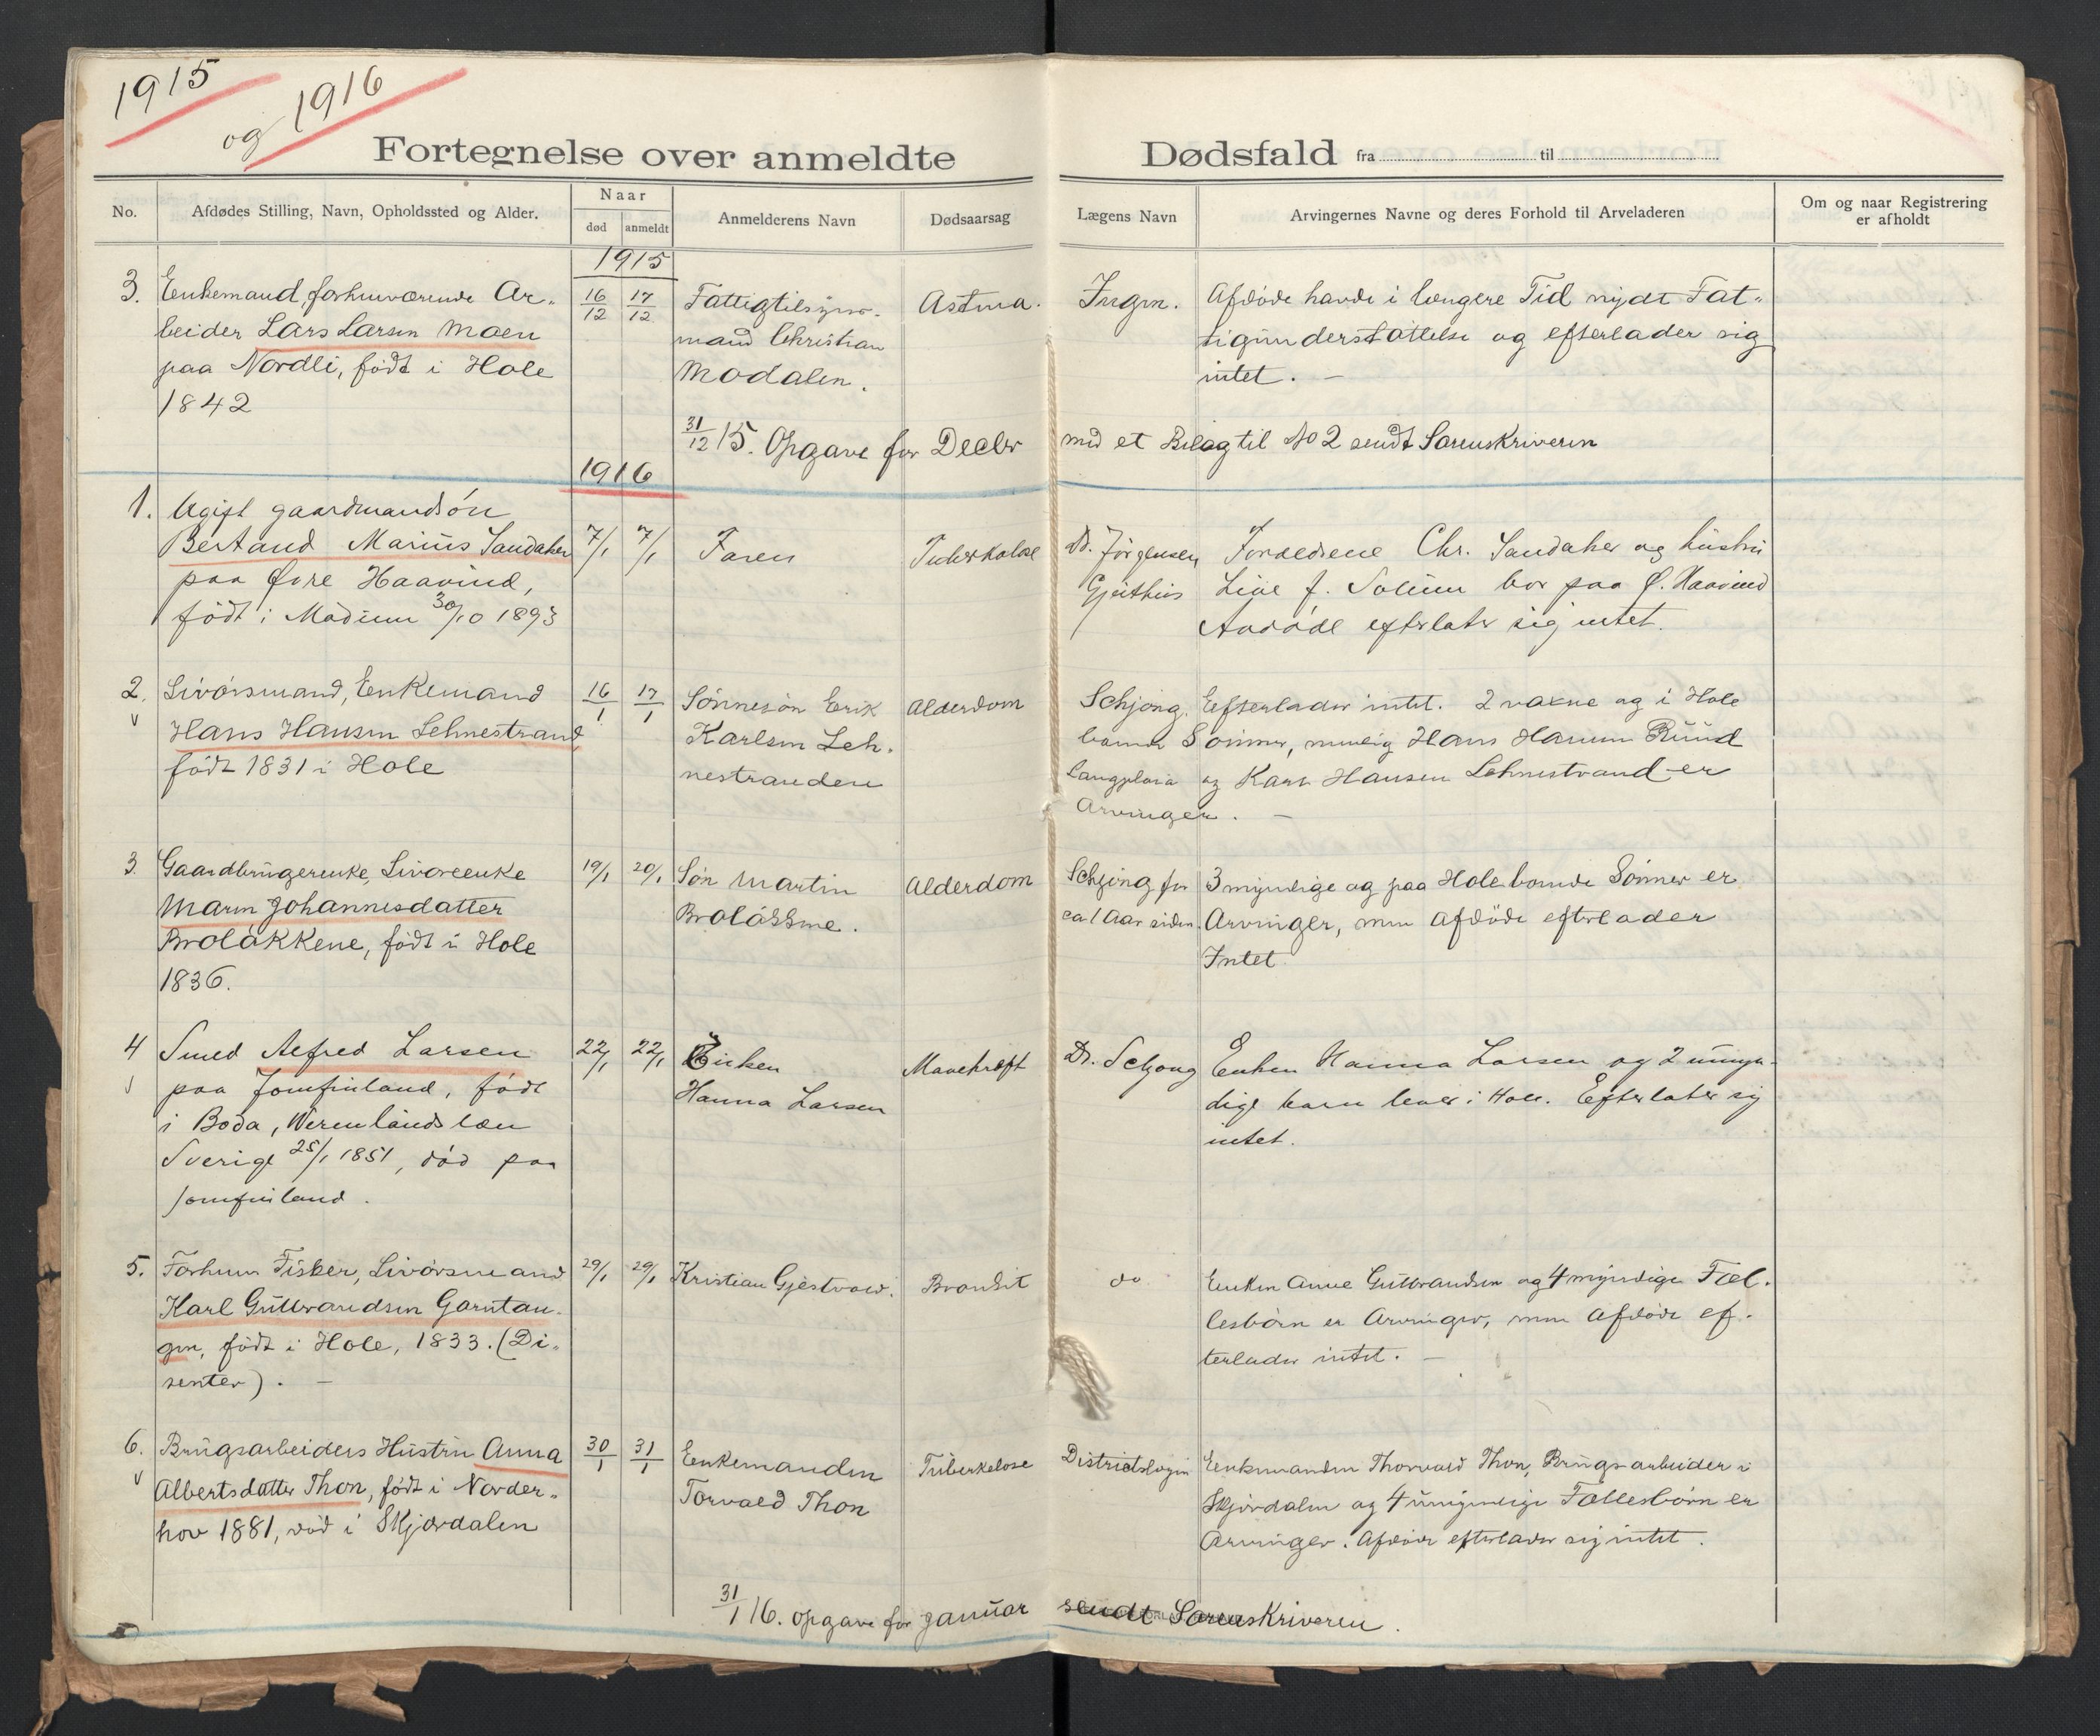 1915
og 1916
Fortegnelse over anmeldte Dødsfald fra til
No.
Afdødes Stilling, Navn, Opholdssted og Alder.
Naar
død
anmeldt
Anmelderens Navn
Dødsaarsag
Lægens Navn
Arvingernes Navne og deres Forhold til Arveladeren
Om og naar Registrering
er afholdt
1915
3.
Enkemand, forhenværende Ar-
beider Lars Larsen Moen
paa Nordli, født i Hole
1842
16/12
17/12
Fattigtilsyns-
mand Christian
Modalen.
Astma.
Ingen.
Afdøde havde i længere Tid nydt Fat-
tigunderstøttelse og efterlader sig
intet. –
31/12 15. Opgave for Decbr med et Bilag til No 2 sendt Sorenskriveren
1916
1.
Ugift gaardmandsön
Bertand Marius Sandaker
paa Øvre Haavind,
født i Modum 30/10 1893
7/1
7/1
Faren
Tuberkolose
Dr. Jörgensen
Gjeithus
Forældrene Chr. Sandaker og hustru
Live f. Solum bor paa Ø. Haavind
Avdöde efterlater sig intet.
2.
Livörsmand, Enkemand
Hans Hansen Lehnestrand,
født 1831 i Hole
16/1
17/1
Sønnesøn Erik
Karlsen Leh-
nestranden
Alderdom
Schjong.
Efterlader intet. 2 voxne og i Hole
boende Sønner, nemlig Hans Hansen Ruud
og Karl Hansen Lehnestrand er
Arvinger. –
3.
Gaardbrugerenke, Livöreenke
Maren Johannesdatter
Broløkkene, født i Hole
1836.
19/1
20/1
Søn Martin
Alderdom
Schjong for
ca 1 Aar siden.
3 myndige og paa Hole boende Sønner er
Arvinger, men Afdöde efterlader
Intet.
4
Smed Alfred Larsen
paa Jomfruland, født
i Boda, Wermlands læn
Sverige 25/1 1851, død paa
Jomfruland.
22/1
22/1
Enken
Hanna Larsen
Mavekræft
Dr. Schjong
Enken Hanna Larsen og 2 umyn-
dige barn lever i Hole. Efterlater sig
intet.
5.
Forhenv Fisker, Livörsmand
Karl Gulbrandsen Garntan-
gen, født i Hole, 1833. (Di-
senter). –
29/1
29/1
Kristian Gjestvold.
Bronkit
do
Enken Anne Gulbrandsen og 4 myndige Fæl-
lesbörn er Arvinger, men Afdöde ef-
terlader intet. –
6.
Brugsarbeiders Hustru Anna
Albertsdatter Thon, født i Norder-
hov 1881, død i Skjærdalen
30/1
31/1
Enkemanden
Torvald Thon
Tuberkelose
Distriktslægen
Enkemanden Thorvald Thon, Brugsarbeider i
Skjærdalen og 4 umyndige Fællesbörn er
Arvinger. Afdöde efterlader sig intet.
31/1 16. Opgave for Januar sendt Sorenskriveren.